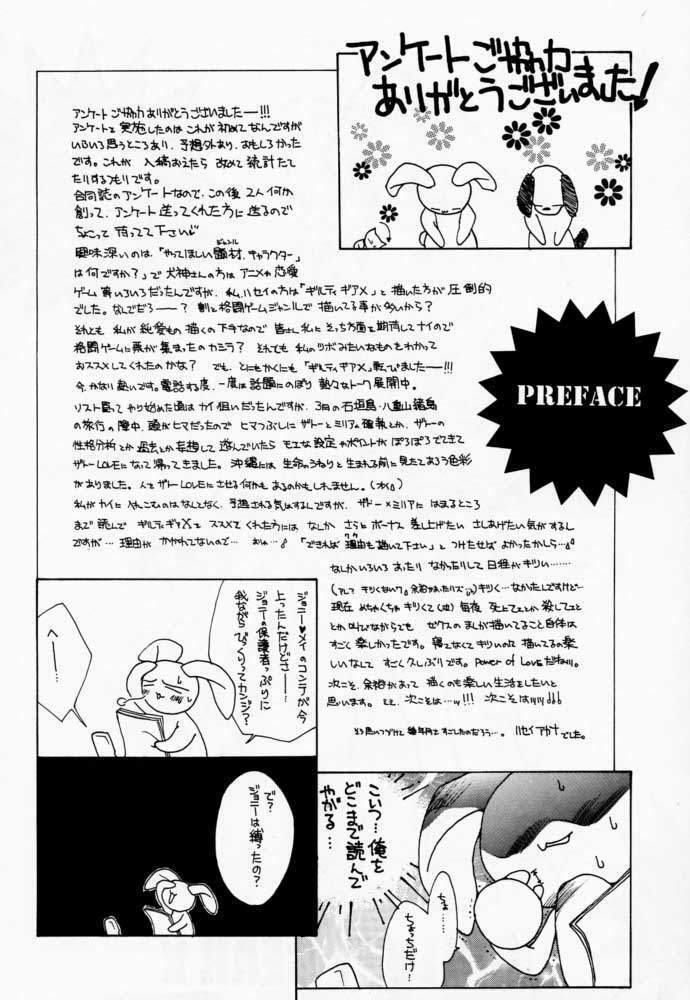 アンケートご協力
ありがとうございました!
アンケートご協力ありがとうございましたー!!!
アンケートを実施したのはこれが初めてなんですが
いろいろ思うところあり、予想外あり、おもしろかった
です。これが入稿おえたら改めて統計たて
たりするつもりです。
合同誌のアンケートなので、この後2人何か
創って、アンケート送ってくれた方に送るので
ちょこっと待ってて下さい
興味深いのは、「やってほしい題材、キャラクター
ジャンル
は何ですか?」で犬神さんの方はアニメや恋愛
ゲーム等いろいろだったんですが、私、ハセイの方は「ギルティギアX」と描いた方が圧倒的
でした。なんでだろー?剣と格闘ゲームジャンルで描いてる事が多いから?
それとも私が純愛もの描くの下手なので皆さん私にそっち方面を期待してナイので
格闘ゲームに票が集まったのカシラ?それとも私のツボみたいなものをわかって
おススメしてくれたのかな?でも、とにもかくにも「ギルティギアX」転びましたー!!!
今、かなり熱いです。電話する度、一度は話題にのぼり熱くなトーク展開中。
PREFACE
やり始めた頃はカイ狙いだったんですが、3月の石垣島・八重山諸島
の旅行の際中、頭がヒマだったのでヒマつぶしにザトーとミリアの確執とか、ザトーの
性格分析とか過去とか妄想して遊んでいたらモエな設定やポイントがぽろぽろでてきて
ザトーLOVEになって帰ってきました。沖縄には生命のうねりと生まれる前に見たであろう色彩
がありました。人をザトーLOVEにさせる何かもあるのかもしれません。
私がカイにやんこなのはなんとなく、予想される気はするんですが、ザトー×ミリアにはまるところ
まで読んでギルティギアXをススメてくれた方にはなんかさらにボーナス差上げたいさしあげたい気がするん
ですが…理由がかかれてないので…「できれば理由も描いて下さい」とつけたせばよかったかしら…
なんかいろいろあったりなかったりして日程がキツい……
キツく…なかったんですけど…
現在めちゃくちゃキツくて(泣)毎夜死してェとか殺してェと
とか叫びながらでもゼクスのまんが描いてること自体は
すごく楽しかったです。寝てなくてキツいのに描いてるの楽
しいなんてすごく久しぶりです。Power of Loveだね!!!
次こそ、余裕があって描くのも楽しい生活をしたいと
思います。とと、次こそは…ッ!!!次こそはッ!!!
そう思いつづけて幾年月をすごしたのだろう…。ハセイアガナでした。
ジョニー♥メイのコンテが今
上ったんだけどさー…
ジョニーの保護者っぷりに
我ながらびっくりってカンジ?
で?
ジョニーは縛ったの?
こいつ…俺を
どこまで読んで
やがる…
ちょ…
ちょっちだけ…